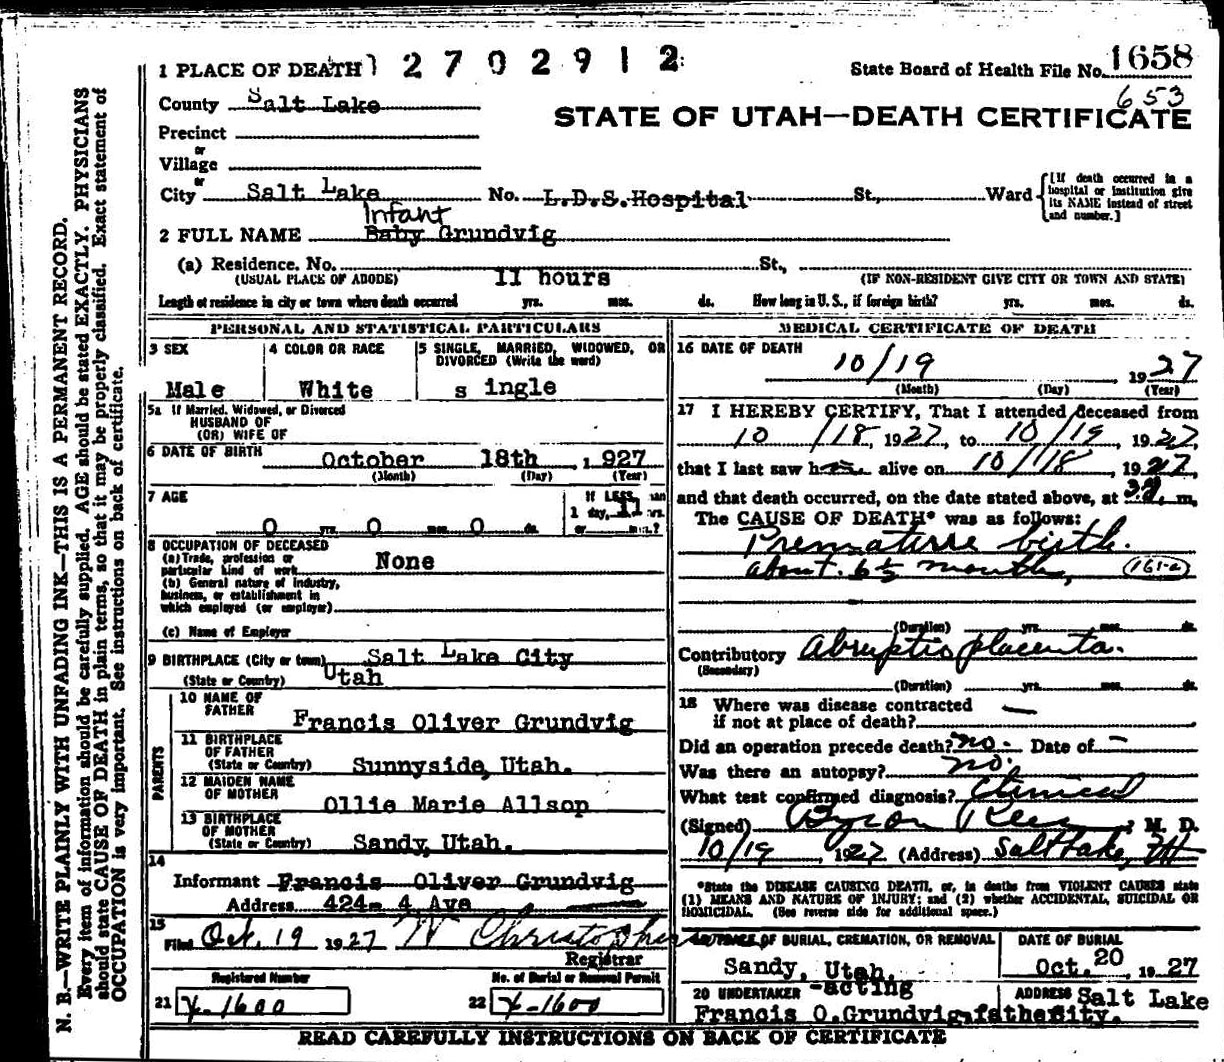 1 PLACE OF DEATH 2702912
State Board of Health File No. 1658
653
County Salt Lake
STATE OF UTAH—DEATH CERTIFICATE
Precinct
or
Village
or
City Salt Lake No. L.D.S. Hospital St., Ward
[If death occurred in a hospital or institution give its NAME instead of street and number.]
Infant
2 FULL NAME Baby Grundvig
(a) Residence. No. St.,
(USUAL PLACE OF ABODE) 11 hours (IF NON-RESIDENT GIVE CITY OR TOWN AND STATE)
Length of residence in city or town where death occurred yrs. mos. ds. How long in U. S., if foreign birth? yrs. mos. ds.
PERSONAL AND STATISTICAL PARTICULARS
3 SEX 4 COLOR OR RACE 5 SINGLE, MARRIED, WIDOWED, OR
DIVORCED (Write the word)
Male White s ingle
5a If Married, Widowed, or Divorced
HUSBAND OF
(OR) WIFE OF
6 DATE OF BIRTH October 18th, 1927
(Month) (Day) (Year)
7 AGE If LESS than
1 day, 11 hrs.
0 yrs. 0 mos. 0 ds. or min.?
8 OCCUPATION OF DECEASED
(a) Trade, profession or
particular kind of work None
(b) General nature of industry,
business, or establishment in
which employed (or employer)
(c) Name of Employer
9 BIRTHPLACE (City or town) Salt Lake City
(State or Country) Utah
PARENTS
10 NAME OF
FATHER Francis Oliver Grundvig
11 BIRTHPLACE
OF FATHER
(State or Country) Sunnyside, Utah.
12 MAIDEN NAME
OF MOTHER Ollie Marie Allsop
13 BIRTHPLACE
OF MOTHER
(State or Country) Sandy, Utah.
14
Informant Francis Oliver Grundvig
Address 424- 4 Ave
15
Filed Oct. 19 1927 W Christopher
Registrar
Registered Number No. of Burial or Removal Permit
21 X-1600 22 X-1600
MEDICAL CERTIFICATE OF DEATH
16 DATE OF DEATH
10/19 1927
(Month) (Day) (Year)
17 I HEREBY CERTIFY, That I attended deceased from
10/18, 1927, to 10/19 1927,
that I last saw h alive on 10/18 1927,
and that death occurred, on the date stated above, at m.
The CAUSE OF DEATH* was as follows:
Premature birth.
about 6½ months,
(Duration) yrs. mos. ds.
Contributory Abruptio placenta.
(Secondary)
(Duration) yrs. mos. ds.
18 Where was disease contracted
if not at place of death? —
Did an operation precede death? no. Date of —
Was there an autopsy? no.
What test confirmed diagnosis? Clinical
(Signed) Byron Rees, M. D.
10/19, 1927 (Address) Salt Lake, Ut
*State the DISEASE CAUSING DEATH, or, in deaths from VIOLENT CAUSES state
(1) MEANS AND NATURE OF INJURY; and (2) whether ACCIDENTAL, SUICIDAL OR
HOMICIDAL. (See reverse side for additional space.)
19 PLACE OF BURIAL, CREMATION, OR REMOVAL DATE OF BURIAL
Sandy, Utah. Oct. 20, 1927
20 UNDERTAKER -acting ADDRESS Salt Lake
Francis O. Grundvig, father City.
READ CAREFULLY INSTRUCTIONS ON BACK OF CERTIFICATE
N. B.—WRITE PLAINLY WITH UNFADING INK—THIS IS A PERMANENT RECORD.
Every item of information should be carefully supplied. AGE should be stated EXACTLY. PHYSICIANS
should state CAUSE OF DEATH in plain terms, so that it may be properly classified. Exact statement of
OCCUPATION is very important. See instructions on back of certificate.